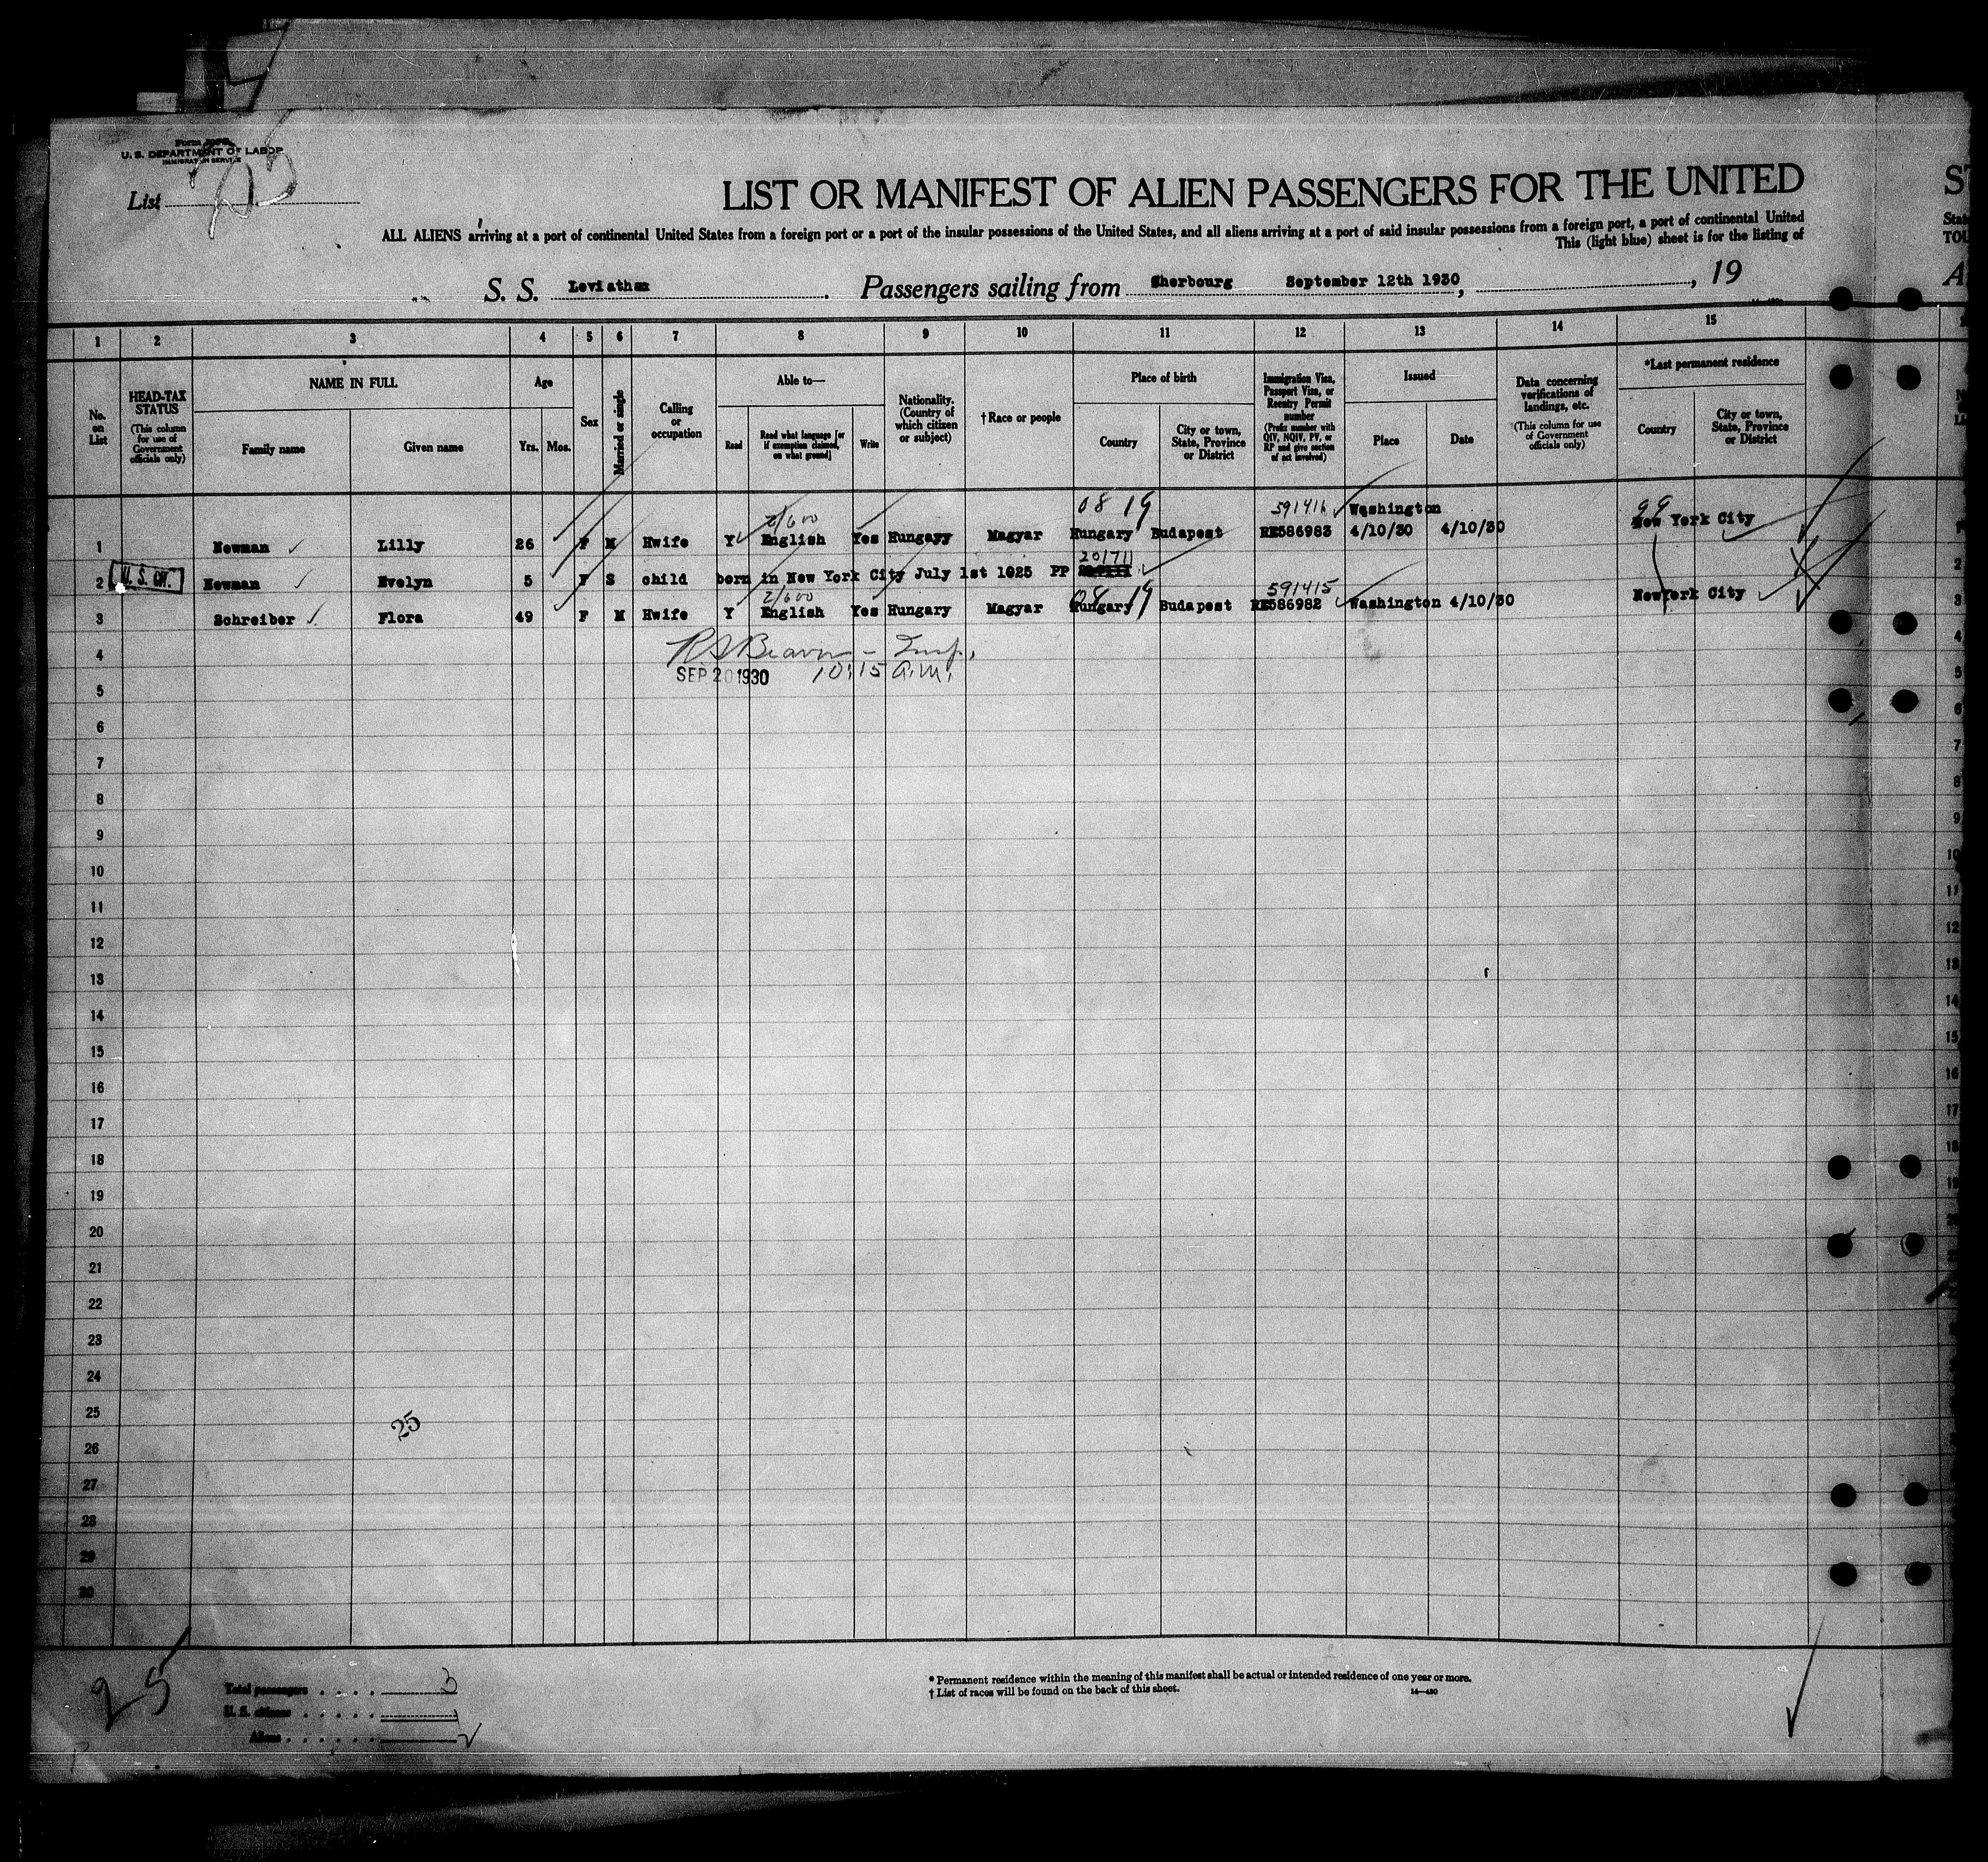 U. S. DEPARTMENT OF LABOR
IMMIGRATION SERVICE
List 25
LIST OR MANIFEST OF ALIEN PASSENGERS FOR THE UNITED
ALL ALIENS arriving at a port of continental United States from a foreign port or a port of the insular possessions of the United States, and all aliens arriving at a port of said insular possessions from a foreign port, a port of continental United
This (light blue) sheet is for the listing of
S. S. Leviathan Passengers sailing from Cherbourg September 12th 1930, , 19
1 2 3 4 5 6 7 8 9 10 11 12 13 14 15
No. on List
HEAD-TAX STATUS (This column for use of Government officials only)
NAME IN FULL
Family name Given name
Age
Yrs. Mos.
Sex
Married or single
Calling or occupation
Able to—
Read Read what language [or if exemption claimed, on what ground] Write
Nationality. (Country of which citizen or subject)
†Race or people
Place of birth
Country City or town, State, Province or District
Immigration Visa, Passport Visa, or Reentry Permit number (Prefix number with QIV, NQIV, PV, or RP and give section of act involved)
Issued
Place Date
Data concerning verifications of landings, etc. (This column for use of Government officials only)
*Last permanent residence
Country City or town, State, Province or District
2/600 08 19 591416 Washington 99
1 Newman Lilly 26 F M Hwife Y English Yes Hungayy Magyar Hungary Budapest RE586983 4/10/30 4/10/30 New York City
20171
2 U.S. CH. Newman Evelyn 5 F S child born in New York City July 1st 1025 PP
2/600 08 19 591415
3 Schreiber Flora 49 F M Hwife Y English Yes Hungary Magyar Hungary Budapest RE586982 Washington 4/10/30 NewYork City
4
SEP 20 1930 10:15 a.m.
5
6
7
8
9
10
11
12
13
14
15
16
17
18
19
20
21
22
23
24
25 25
26
27
28
29
30
25
Total passengers . . . . 3
U. S. citizens . . . . . 1
Aliens . . . . . . 2
* Permanent residence within the meaning of this manifest shall be actual or intended residence of one year or more.
† List of races will be found on the back of this sheet. 14—430